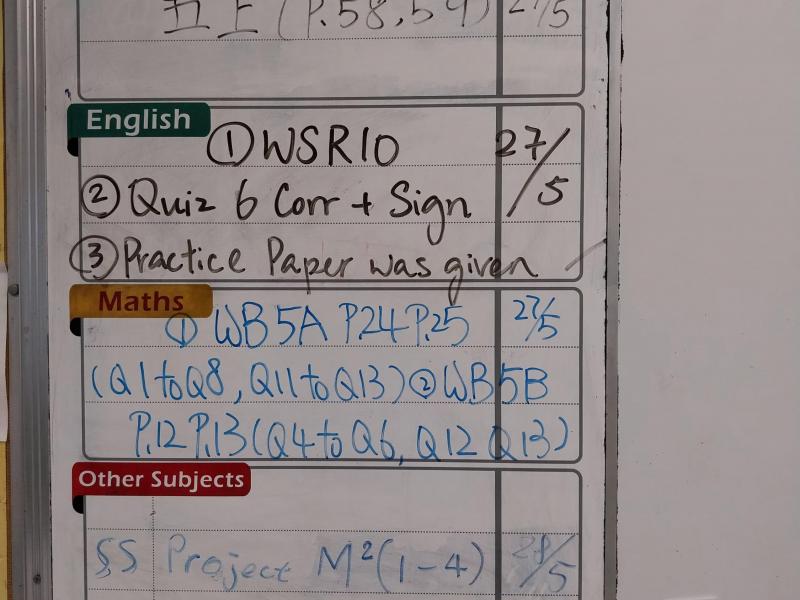 五上(P.58,59) 27/5
English
①WSR10 27/5
② Quiz 6 Corr + Sign
③ Practice Paper was given
Maths
① WB5A P.24 P.25 27/5
(Q1 to Q8, Q11 to Q13) ② WB5B
P.12 P.13 (Q4 to Q6, Q12 Q13)
Other Subjects
§S Project M²(1-4) 28/5